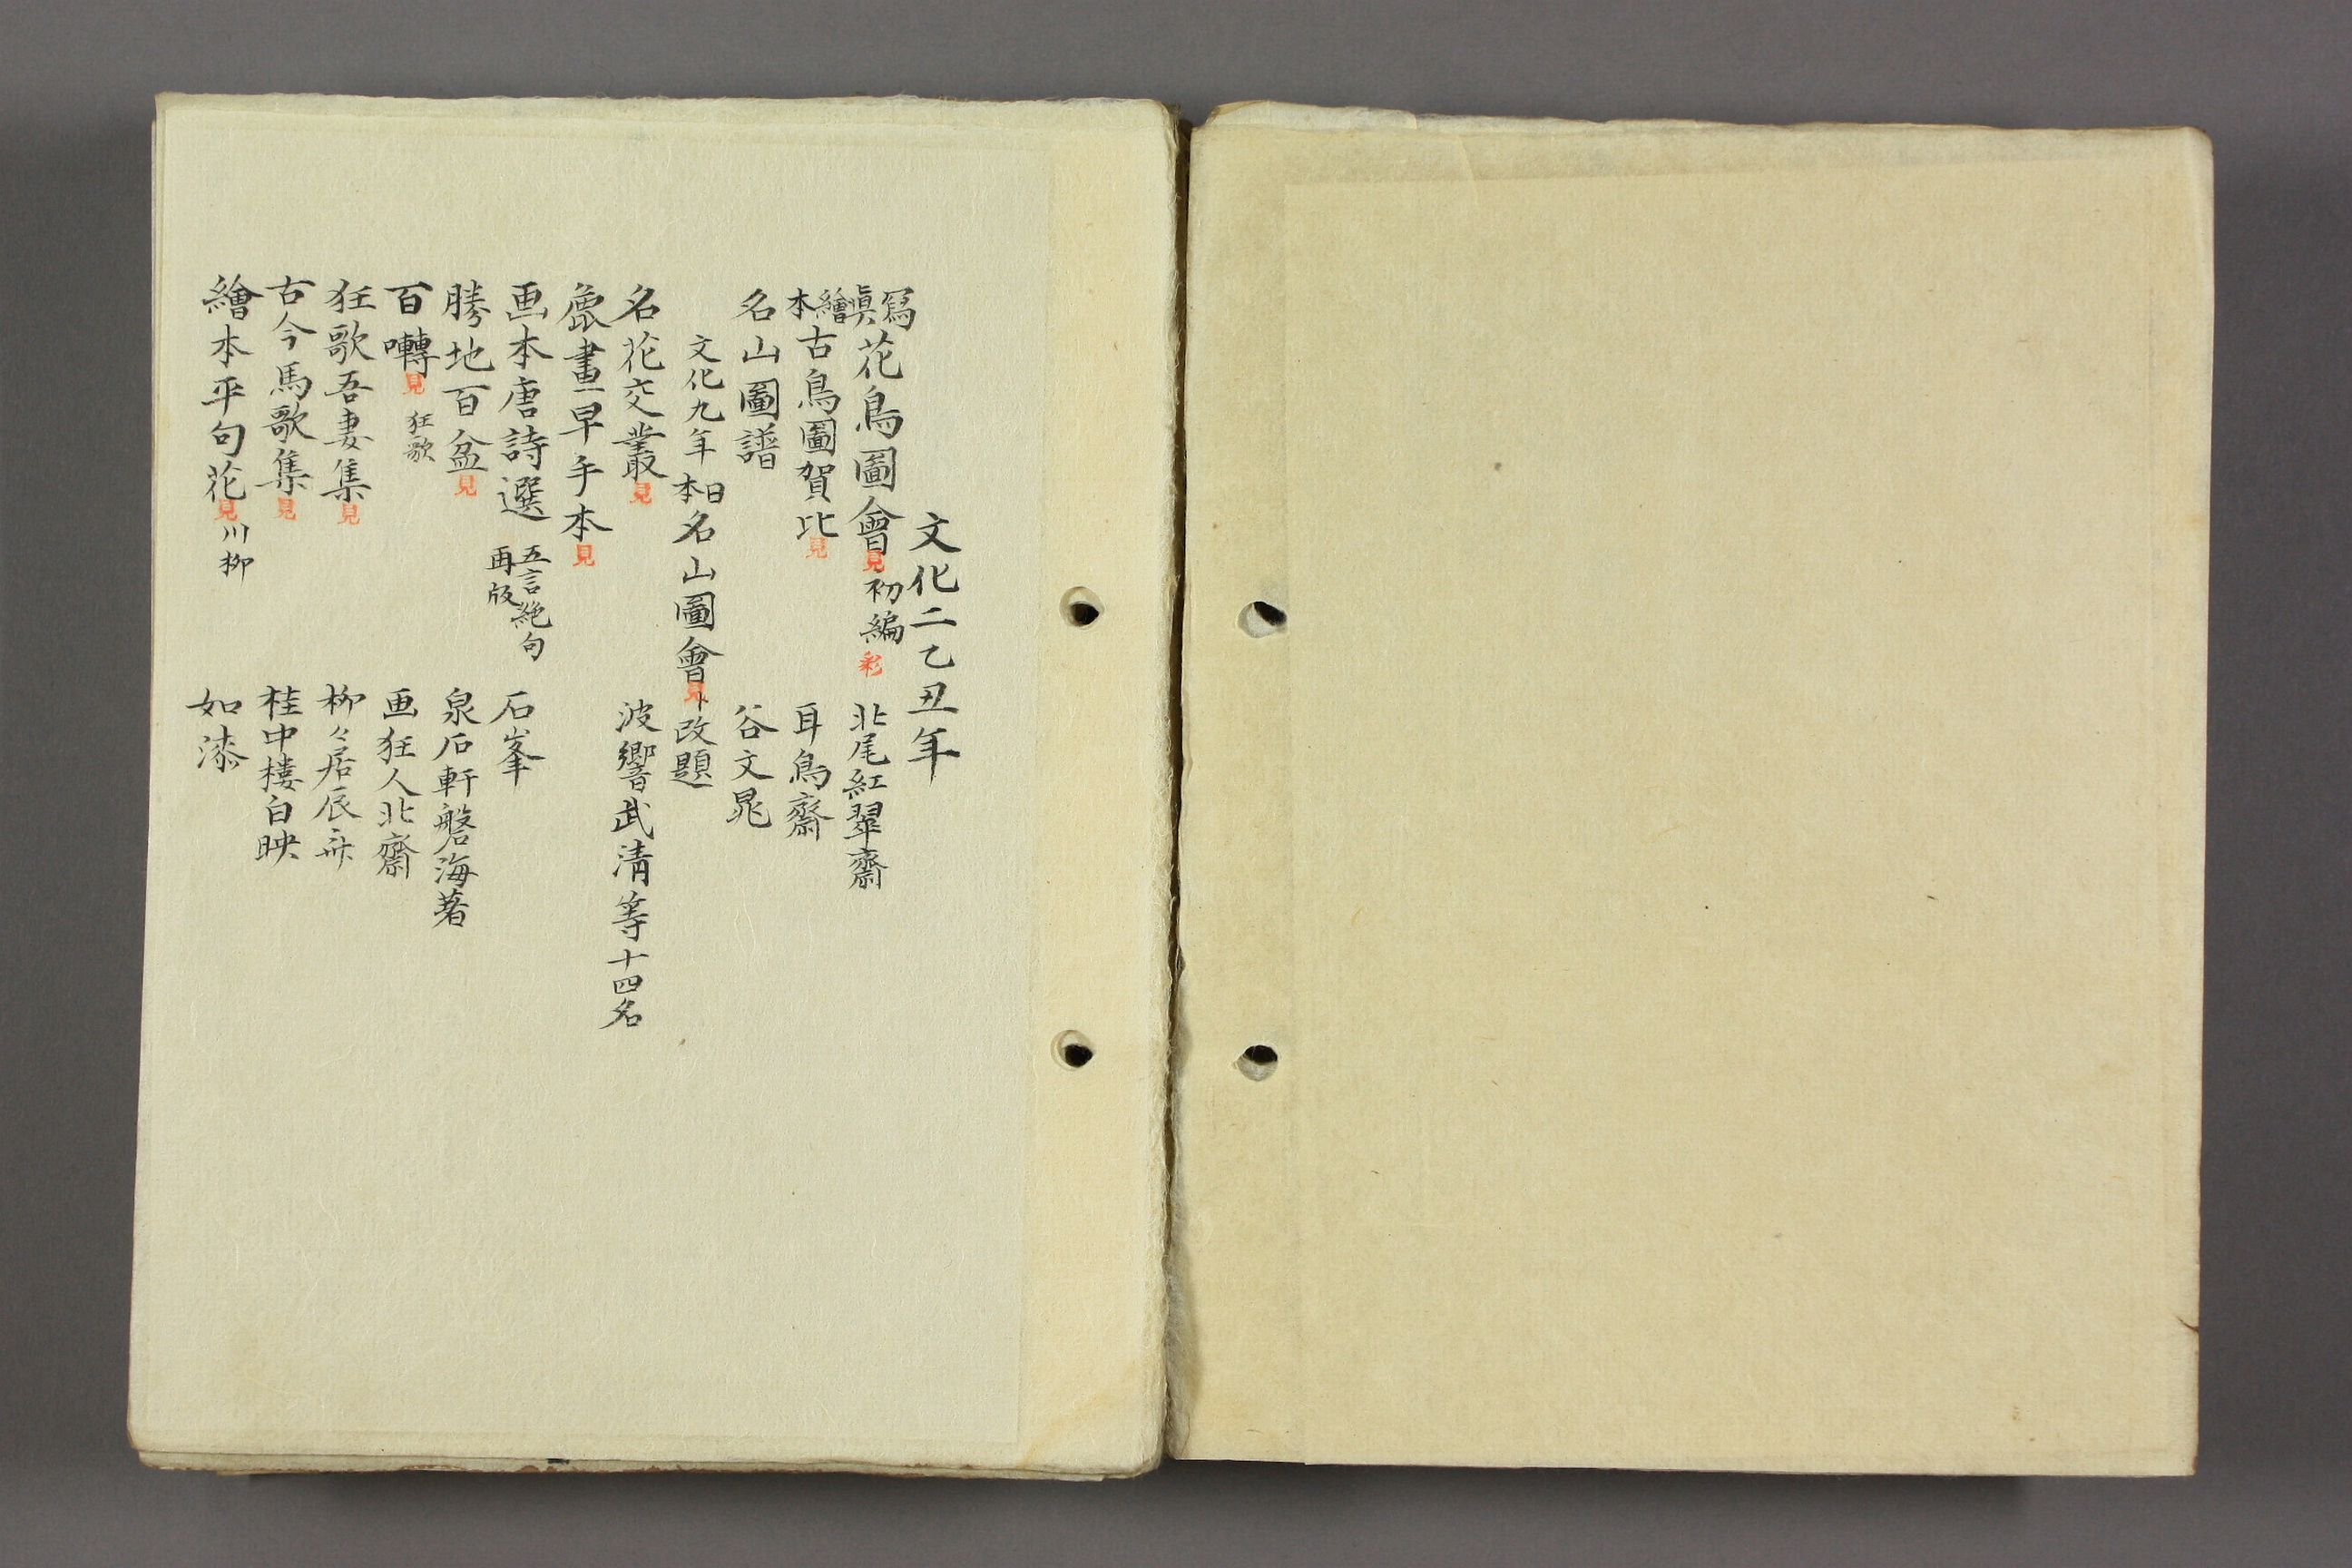 文化二乙丑年
寫眞花鳥圖會見初編彩 北尾紅翠齋
繪本古鳥圖賀比見 耳鳥齋
名山圖譜 谷文晁
文化九年日本名山圖會見ト改題
名花交叢見 波響武清等十四名
麁畫早手本見
画本唐詩選 五言絶句再版 石峯
勝地百盆見 泉石軒磐海著
百囀見 狂歌 画狂人北齋
狂歌吾妻集見 柳々居辰斎
古今馬歌集見 桂中樓白映
繪本平句花見川柳 如漆